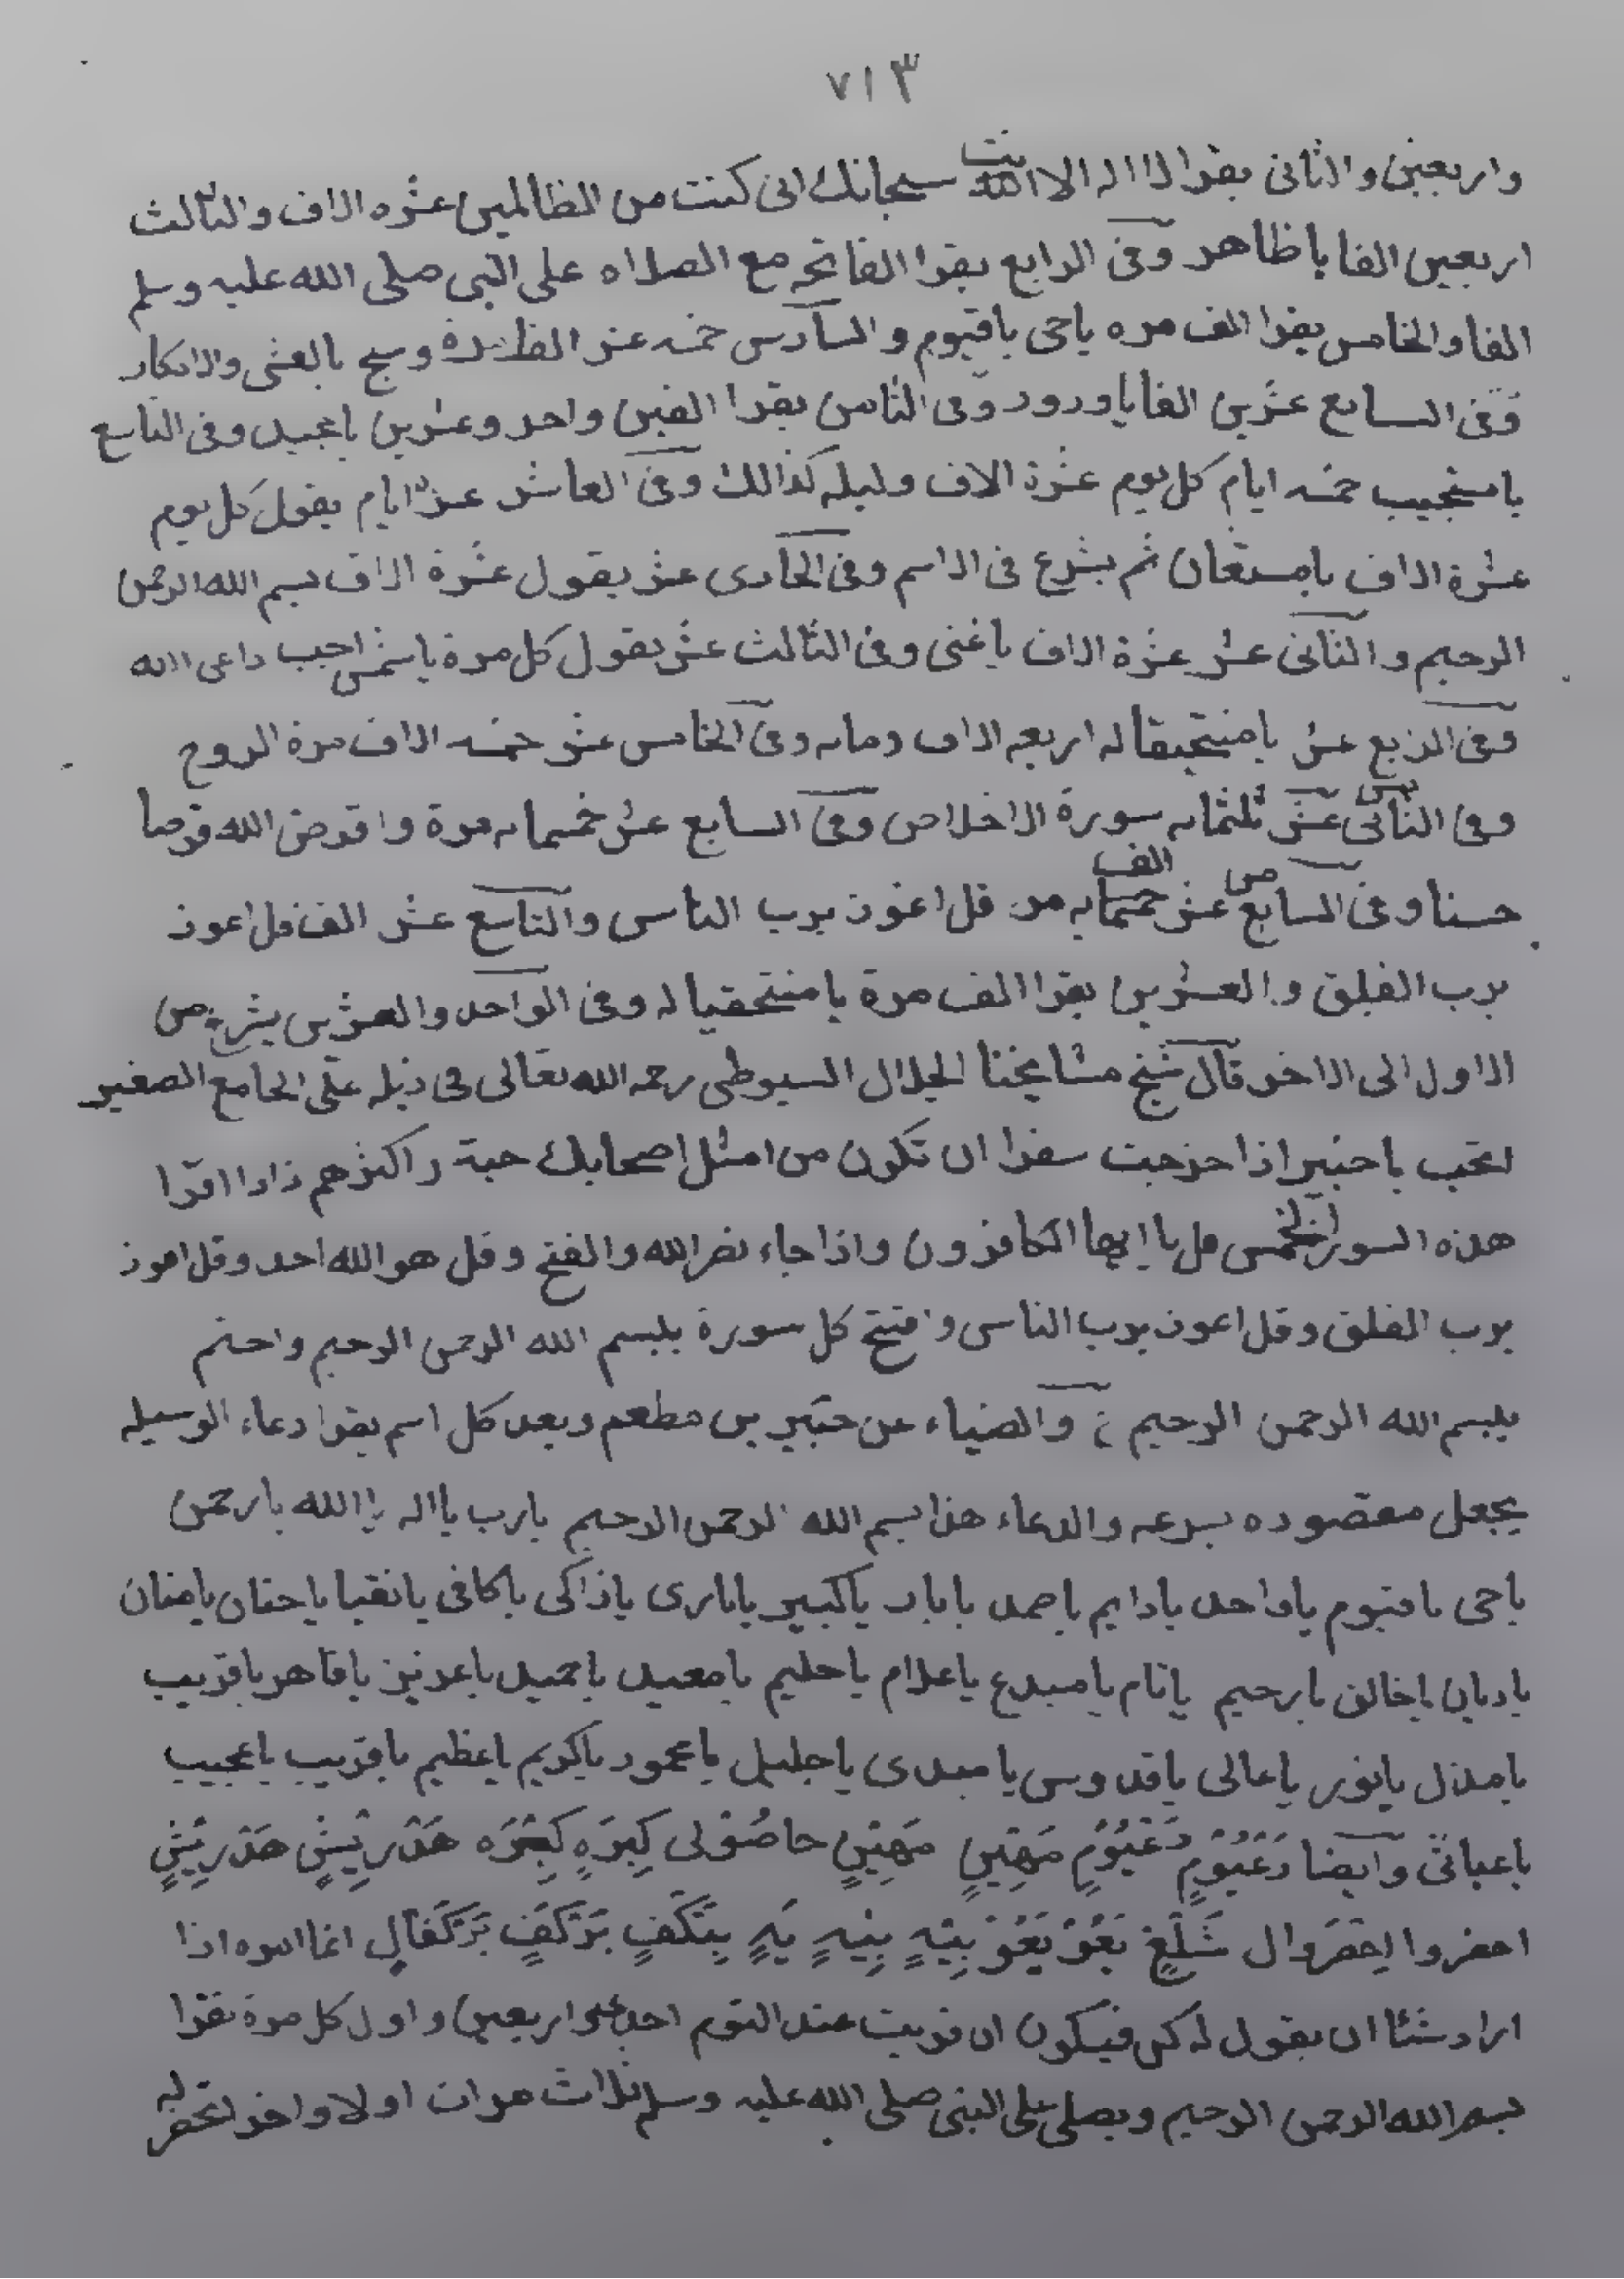 ٧١٣
واربعين والثانى يقرا لا اله الا انت سبحانك انى كنت من الظالمين عشره الاف والثالث
اربعين الفا يا ظاهر وفى الرابع يقرا الفاتحه مع الصلاه على النبى صلى الله عليه وسلم
الفا والخامس يقرا الف مره ياحى ياقيوم والسادس خمسه عشر وسبح بالعشى والابكار
وفى السابع عشرين الفا ياورود وفى الثامن يقرا الفين واحد وعشرين يامجيد وفى التاسع
يامستجيب خمسه ايام كل يوم عشرة الاف وليله كذالك وفى العاشر عشرة ايام يقول كل يوم
عشرة الاف يامستعان ثم يشرع فى الاسم وفى الحادى عشر يقول عشرة الاف بسم الله الرحمن
الرحيم والثانى عشر عشرة الاف ياغنى وفى الثالث عشر يقول كل مرة ياشمس اجب داعى الله
وفى الربع عشر اربعه الاف ومايه وفى الخامس عشر خمسه الاف مرة الروح
وفى عشر ثلثمايه سورة الاخلاص وفى السابع عشر خمسمايه مرة واقرض الله قرضا
حسنا وفى عشر الف مره قل اعوذ برب الناس والتاسع عشر الف قل اعوذ
برب الفلق والعشرين يقرا الف مرة وفى الواحد والعشرين يشرع من
الاول الى الاخر قال شيخ مشايخنا الجلال السيوطى رحمه الله تعالى فى ذيله على الجامع الصغير
اتحب ياجبير اذا خرجت سفرا ان تكون من امثل اصحابك هيبة واكثرهم زادا اقرا
هذه السور الخمس قل يا ايها الكافرون واذا جاء نصر الله والفتح وقل هو الله احد وقل اعوذ
برب الفلق وقل اعوذ برب الناس وافتتح كل سورة ببسم الله الرحمن الرحيم واختم
ببسم الله الرحمن الرحيم ع والضياء عن جبير بن مطعم وبعد كل اسم يقرا دعاء الوسيله
يجعل مقصوده بسرعه والدعاء هذا بسم الله الرحمن الرحيم يارب يااله ياالله يارحمن
ياحى ياقيوم ياواحد يادايم ياصمد يابار ياكبير يابارى ياذاكى ياكافى يانقيا ياحنان يامنان
ياديان ياخالق يارحيم ياتام يامبدع ياعلام ياحليم يامعيد ياحميد ياعزيز ياقاهر ياقريب
يامذل يانور ياعالى ياقدوس يامبدى ياجليل يامحمود ياكريم ياعظيم ياقريب ياعجيب
ياغياثى وايضا مَهِيَنٍ مَهِيَنٍ
احضروا انما امره اذا
اراد شيئا ان يقول له كن فيكون ان قريت عند النوم احدى واربعين واول كل مرة تقرا
بسم الله الرحمن الرحيم ويصلى على النبى صلى الله عليه وسلم ثلاث مرات اولا واخر